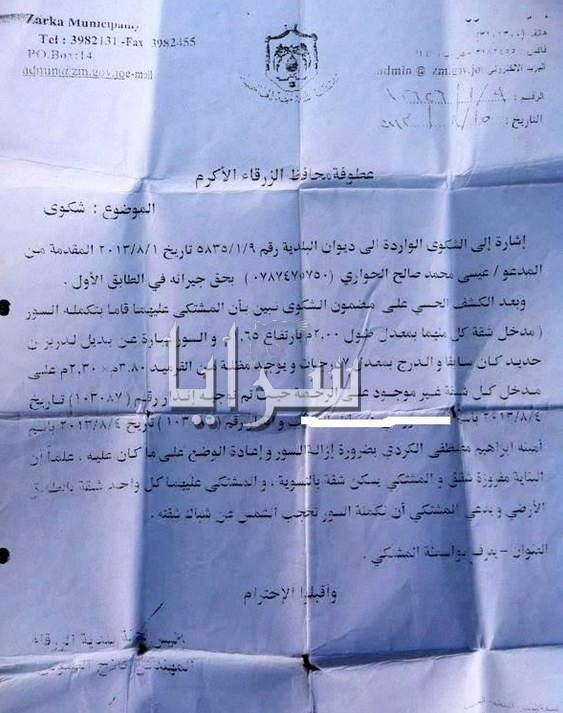 Zarka Municipality
Tel : 3982131 -Fax 3982455
P.O.Box:14
admin@zm.gov.jo e-mail
هاتف
فاكس
البريد الالكتروني admin @ zm.gov.jo
الرقم :
التاريخ :
عطوفة محافظ الزرقاء الأكرم
الموضوع : شكوى
إشارة إلى الشكوى الواردة الى ديوان البلدية رقم ٥٨٣٥/١/٩ تاريخ ٢٠١٣/٨/١ المقدمة من
المدعو / عيسى محمد صالح الحواري (٠٧٨٧٤٧٥٧٥٠) بحق جيرانه في الطابق الأول .
وبعد الكشف الحسي على مضمون الشكوى تبين بأن المشتكى عليهما قاما بتكملة السور
( مدخل شقة كل منهما بمعدل طول ٢,٠٠م بارتفاع ١,٦٥م و السور عبارة عن بديل لدربزين
حديد كان سابقا و الدرج بمعدل ٧ درجات و يوجد مظلة من القرميد ٣,٨٠م × ٢,٣٠م على
مدخل كل شقة غير موجود على الرخصة حيث تم توجيه إنذار رقم (١٠٣٠٨٧) تاريخ
٢٠١٣/٨/٤ تاريخ ٢٠١٣/٨/٤ باسم
أمينه ابراهيم مصطفى الكردي بضرورة إزالة السور و إعادة الوضع على ما كان عليه ، علماً أن
البناية مفروزة شقق و المشتكي يسكن شقة بالتسوية ، و المشتكى عليهما كل واحد شقة بالطابق
الأرضي و يدعي المشتكي أن تكملة السور تحجب الشمس عن شباك شقته .
العنوان – يعرف بواسطة المشتكي .
وأقبلوا الإحترام
رئيس لجنة بلدية الزرقاء
المهندس فالح
سرايا